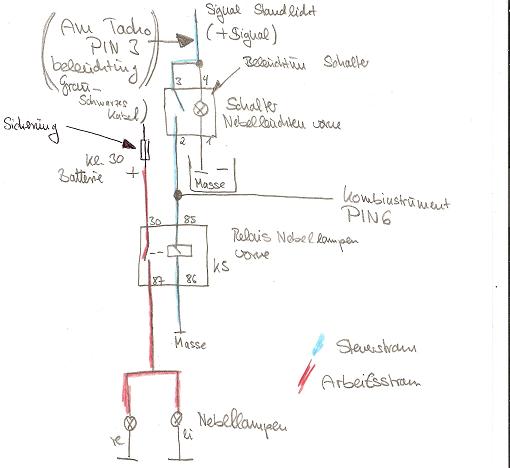 Signal Standlicht
(+ Signal)
(Am Tacho
PIN 3
beleuchtung
Grau-
Schwarzes
Kabel)
Beleuchtun Schalter
3
4
Schalter
Nebelleuchten vorne
2
1
Masse
Sicherung
Kl. 30
Batterie +
Kombinstrument
PIN 6
30
85
Relais Nebellampen
vorne
K5
87
86
Masse
Steuerstrom
Arbeitsstrom
Nebellampen
re
li